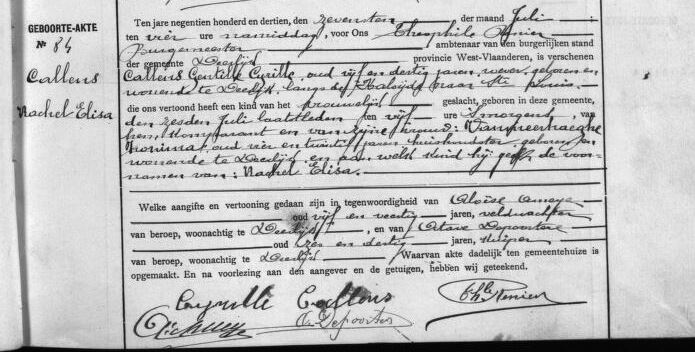 GEBOORTE-AKTE
№ 84
Callens
Rachel Elisa
Ten jare negentien honderd en dertien, den zevensten der maand Juli
ten vier ure namiddag, voor Ons Theophile
Burgemeester ambtenaar van den burgerlijken stand
der gemeente Deerlijk provincie West-Vlaanderen, is verschenen
Callens Gentille Cyrille, oud vijf en dertig jaren, wever, geboren en
wonende te Deerlijk, langs de Kalsijde naar Ste Louis
die ons vertoond heeft een kind van het vrouwelijk geslacht, geboren in deze gemeente,
den zesden Juli laatstleden ten vijf ure 's morgens, van
hem komparant en van zijne vrouw:
oud vier en twintig jaren, huishoudster, geboren en
wonende te Deerlijk, en aan welk kind hij geeft de voor-
namen van: Rachel Elisa.
Welke aangifte en vertooning gedaan zijn in tegenwoordigheid van Aloïse
oud vijf en veertig jaren, veldwachter
van beroep, woonachtig te Deerlijk, en van Octave Depoortere
oud zes en dertig jaren, kuiper
van beroep, woonachtig te Deerlijk Waarvan akte dadelijk ten gemeentehuize is
opgemaakt. En na voorlezing aan den aangever en de getuigen, hebben wij geteekend.
Cyrille Callens
O. Depoortere